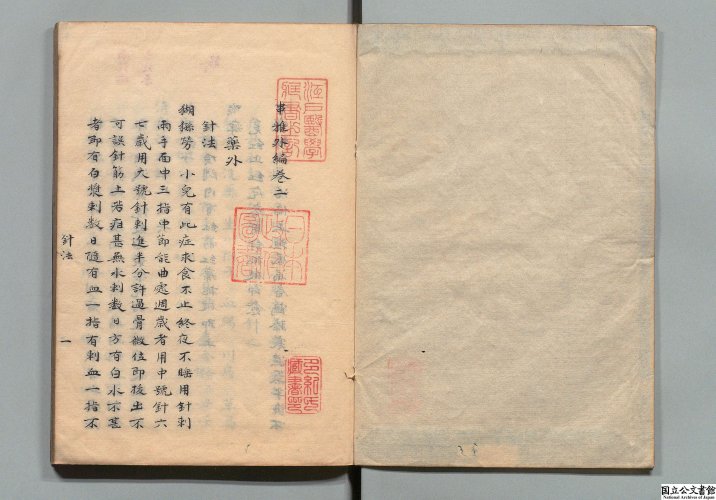 串雅外編卷二
藥外
針法
猢猻勞 小兒有此症求食不止終夜不睡用針刺
兩手面中三指中節能曲處週歲者用中號針六
七歲用大號針刺進半分許過骨微位即拔出不
可誤針筋上若疳甚無水刺數日方有白水不甚
者即有白漿刺數日隨有血一指有刺血一指不
針法
一
江戶醫學
藏書之記
日本
政府
圖書
國立公文書館
National Archives of Japan